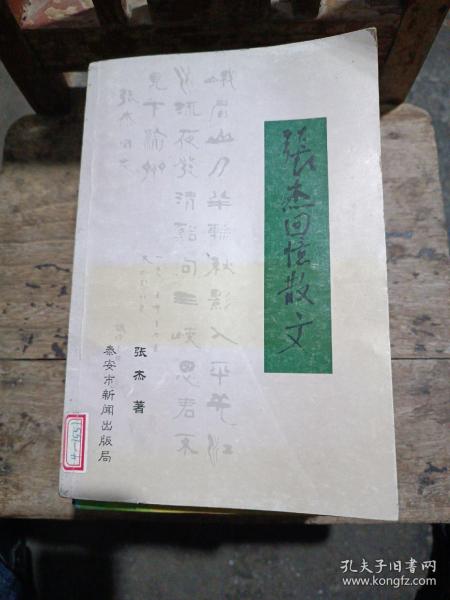 張杰回憶散文
峨眉山月半輪秋影入平羌江
水流夜發清谿向三峽思君不
見下渝州
张杰 著
泰安市新闻出版局
孔夫子旧书网
www.kongfz.com